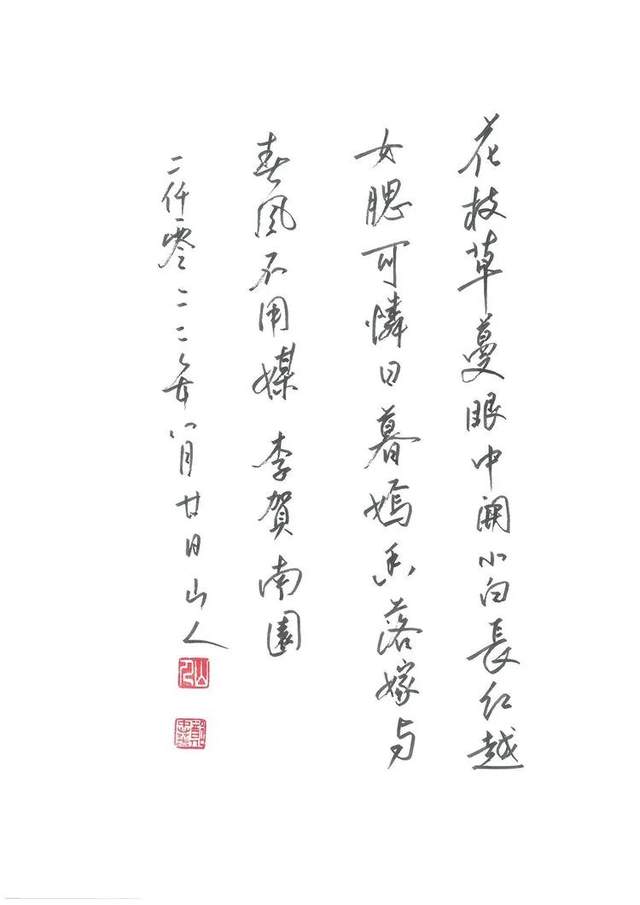 花枝草蔓眼中開小白長紅越
女腮可憐日暮嫣香落嫁与
春風不用媒 李賀南園
二仟零二二年八月廿日山人
山人